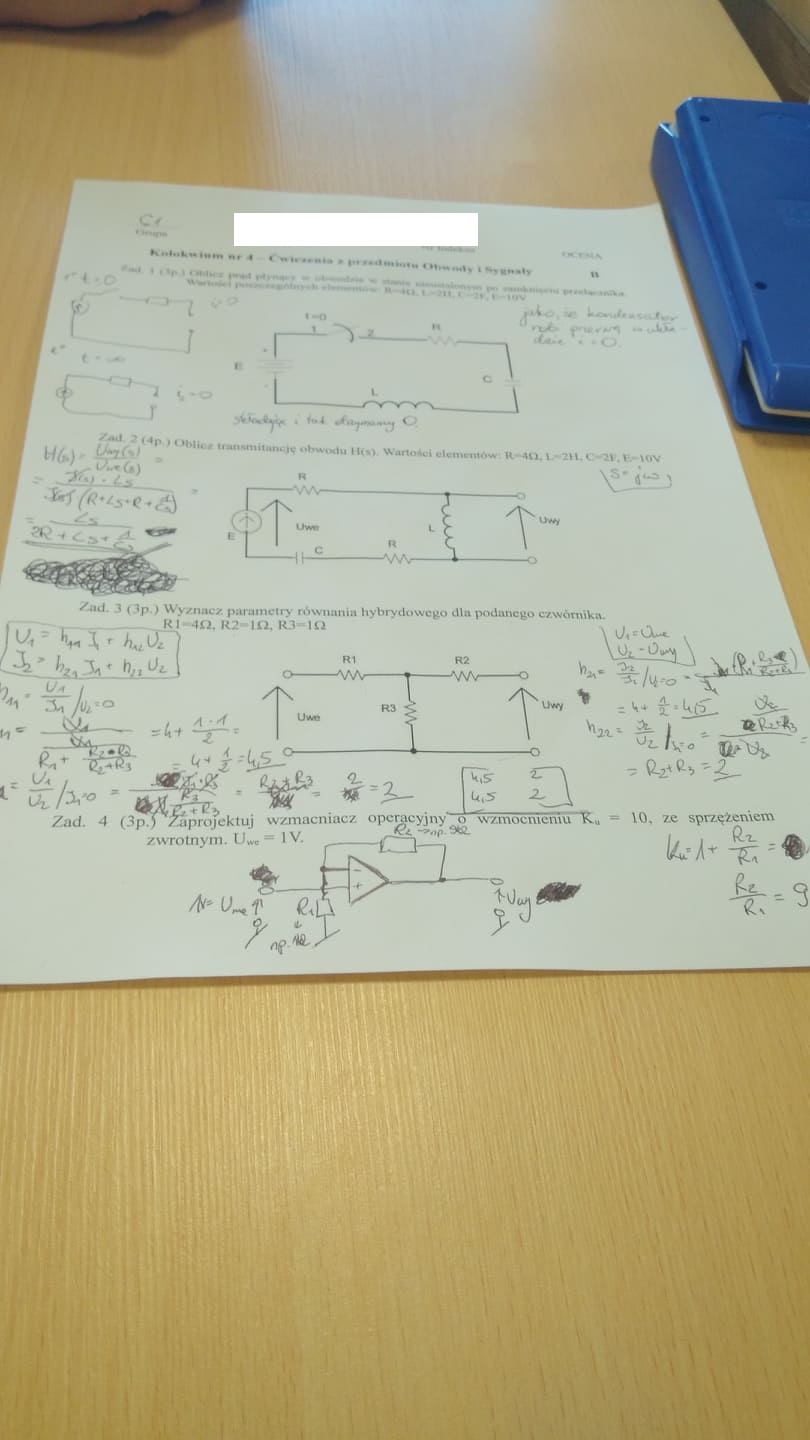 C1
Grupa
Nr indeksu
OCENA
Kolokwium nr 4 – Ćwiczenia z przedmiotu Obwody i Sygnały
B
Zad. 1 (3p.) Oblicz prąd płynący w obwodzie w stanie nieustalonym po zamknięciu przełącznika.
Wartości poszczególnych elementów: R=4Ω, L=2H, C=2F, E=10V
1° t=0
i=0
t=0
1
2
R
E
C
L
jako, że kondensator
robi przerwę w ukła-
dzie i=0.
t=∞
i=0
składając i tak otrzymamy 0.
Zad. 2 (4p.) Oblicz transmitancję obwodu H(s). Wartości elementów: R=4Ω, L=2H, C=2F, E=10V
H(s) = Uwy(s)/Uwe(s) =
= I(s)·Ls / I(s)(R+Ls+R+1/Cs) =
= Ls / 2R+Ls+1/Cs
s=jω
R
Uwe
L
Uwy
E
C
R
Zad. 3 (3p.) Wyznacz parametry równania hybrydowego dla podanego czwórnika.
R1=4Ω, R2=1Ω, R3=1Ω
U1 = h11 I1 + h12 U2
I2 = h21 I1 + h22 U2
U1=Uwe
U2=Uwy
R1
R2
R3
Uwe
Uwy
h11 = U1/I1 /U2=0
R1+ R2·R3/R2+R3
=4+ 1·1/2 =
= 4+ 1/2 = 4,5
h21= I2/I1 /U2=0 =
= 4+ 1/2 = 4,5
h22= I2/U2 /I1=0 =
= R2+R3 = 2
= U1/U2 /I1=0 =
= 2
4,5 2
4,5 2
Zad. 4 (3p.) Zaprojektuj wzmacniacz operacyjny o wzmocnieniu Ku = 10, ze sprzężeniem
zwrotnym. Uwe = 1V.
R2 → np. 9Ω
Ku=1+ R2/R1 =
R2/R1 = 9
1V= Uwe
R1
np. 1Ω
-
+
Uwy